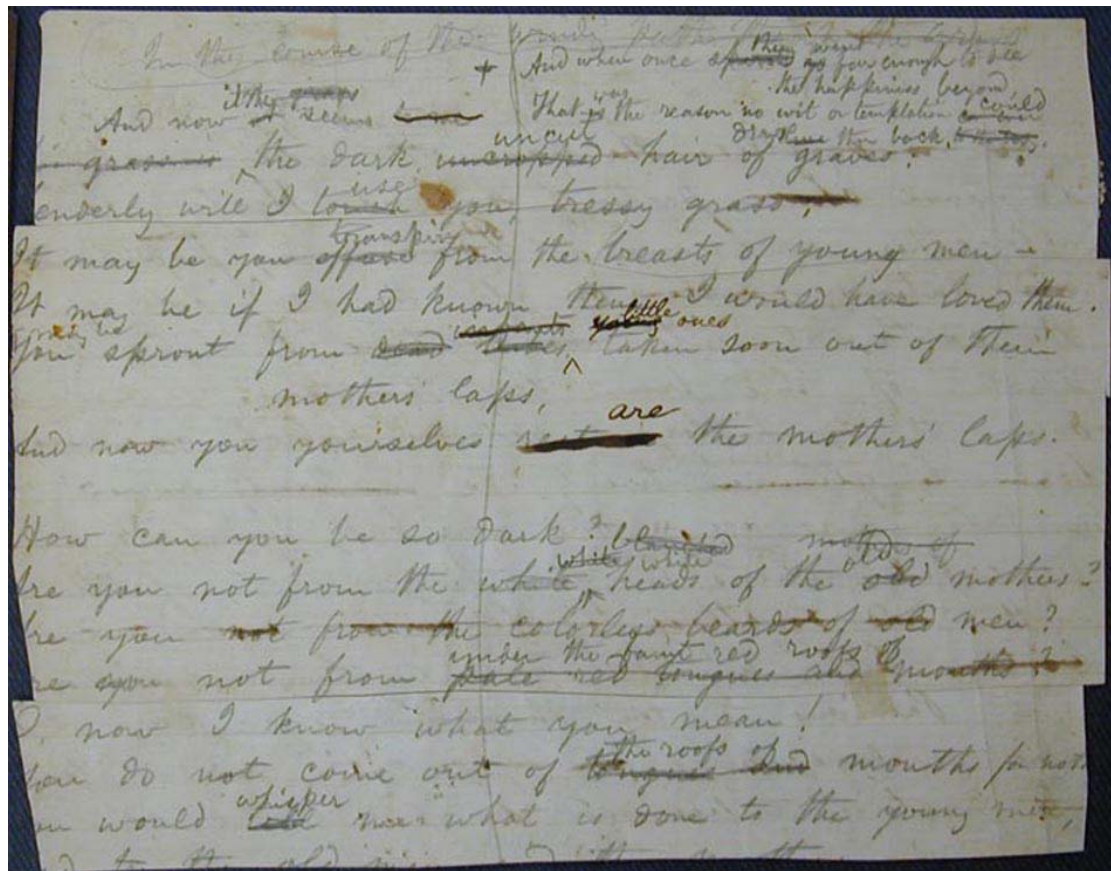 In the course of the
And when once they went far enough to see
the happiness beyond
+
That was the reason no wit or temptation could
drag them back,
And now it seems to me
grass is the dark uncropped uncut hair of graves.
enderly will I touch use you, tressy grass,
It may be you effuse transpire from the breasts of young men
It may be if I had known them I would have loved them.
You may be sprout from dead infants young little ones taken soon out of their
mothers' laps,
And now you yourselves are the mothers' laps.
How can you be so dark?
Are you not from the white white heads of the old mothers?
re you not from the colorless beards of old men?
under the faint red roofs of
re you not from pale red tongues and mouths?
O, now I know what you mean!
the roofs of
You do not come out of tongues and mouths for noth
whisper
ou would tell me what is done to the young men,